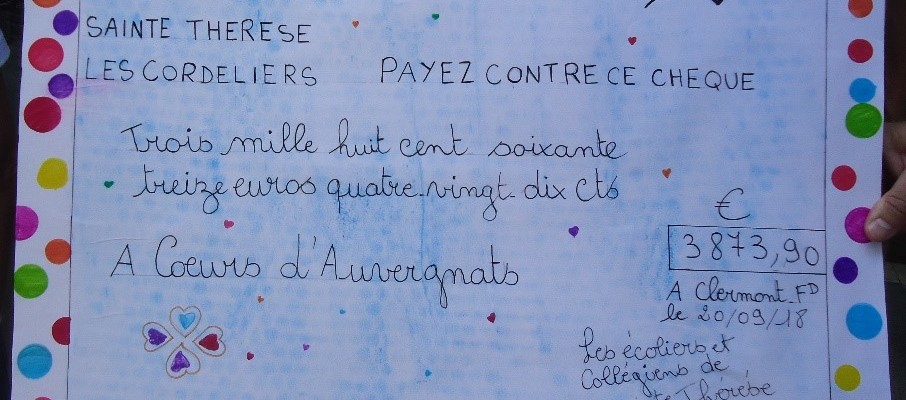 SAINTE THERESE
LES CORDELIERS PAYEZ CONTRE CE CHEQUE
Trois mille huit cent soixante
treize euros quatre-vingt-dix cts
€
3873,90
A Coeurs d'Auvergnats
A Clermont-FD
le 20/09/18
Les écoliers et
Collégiens de
te Thérèse